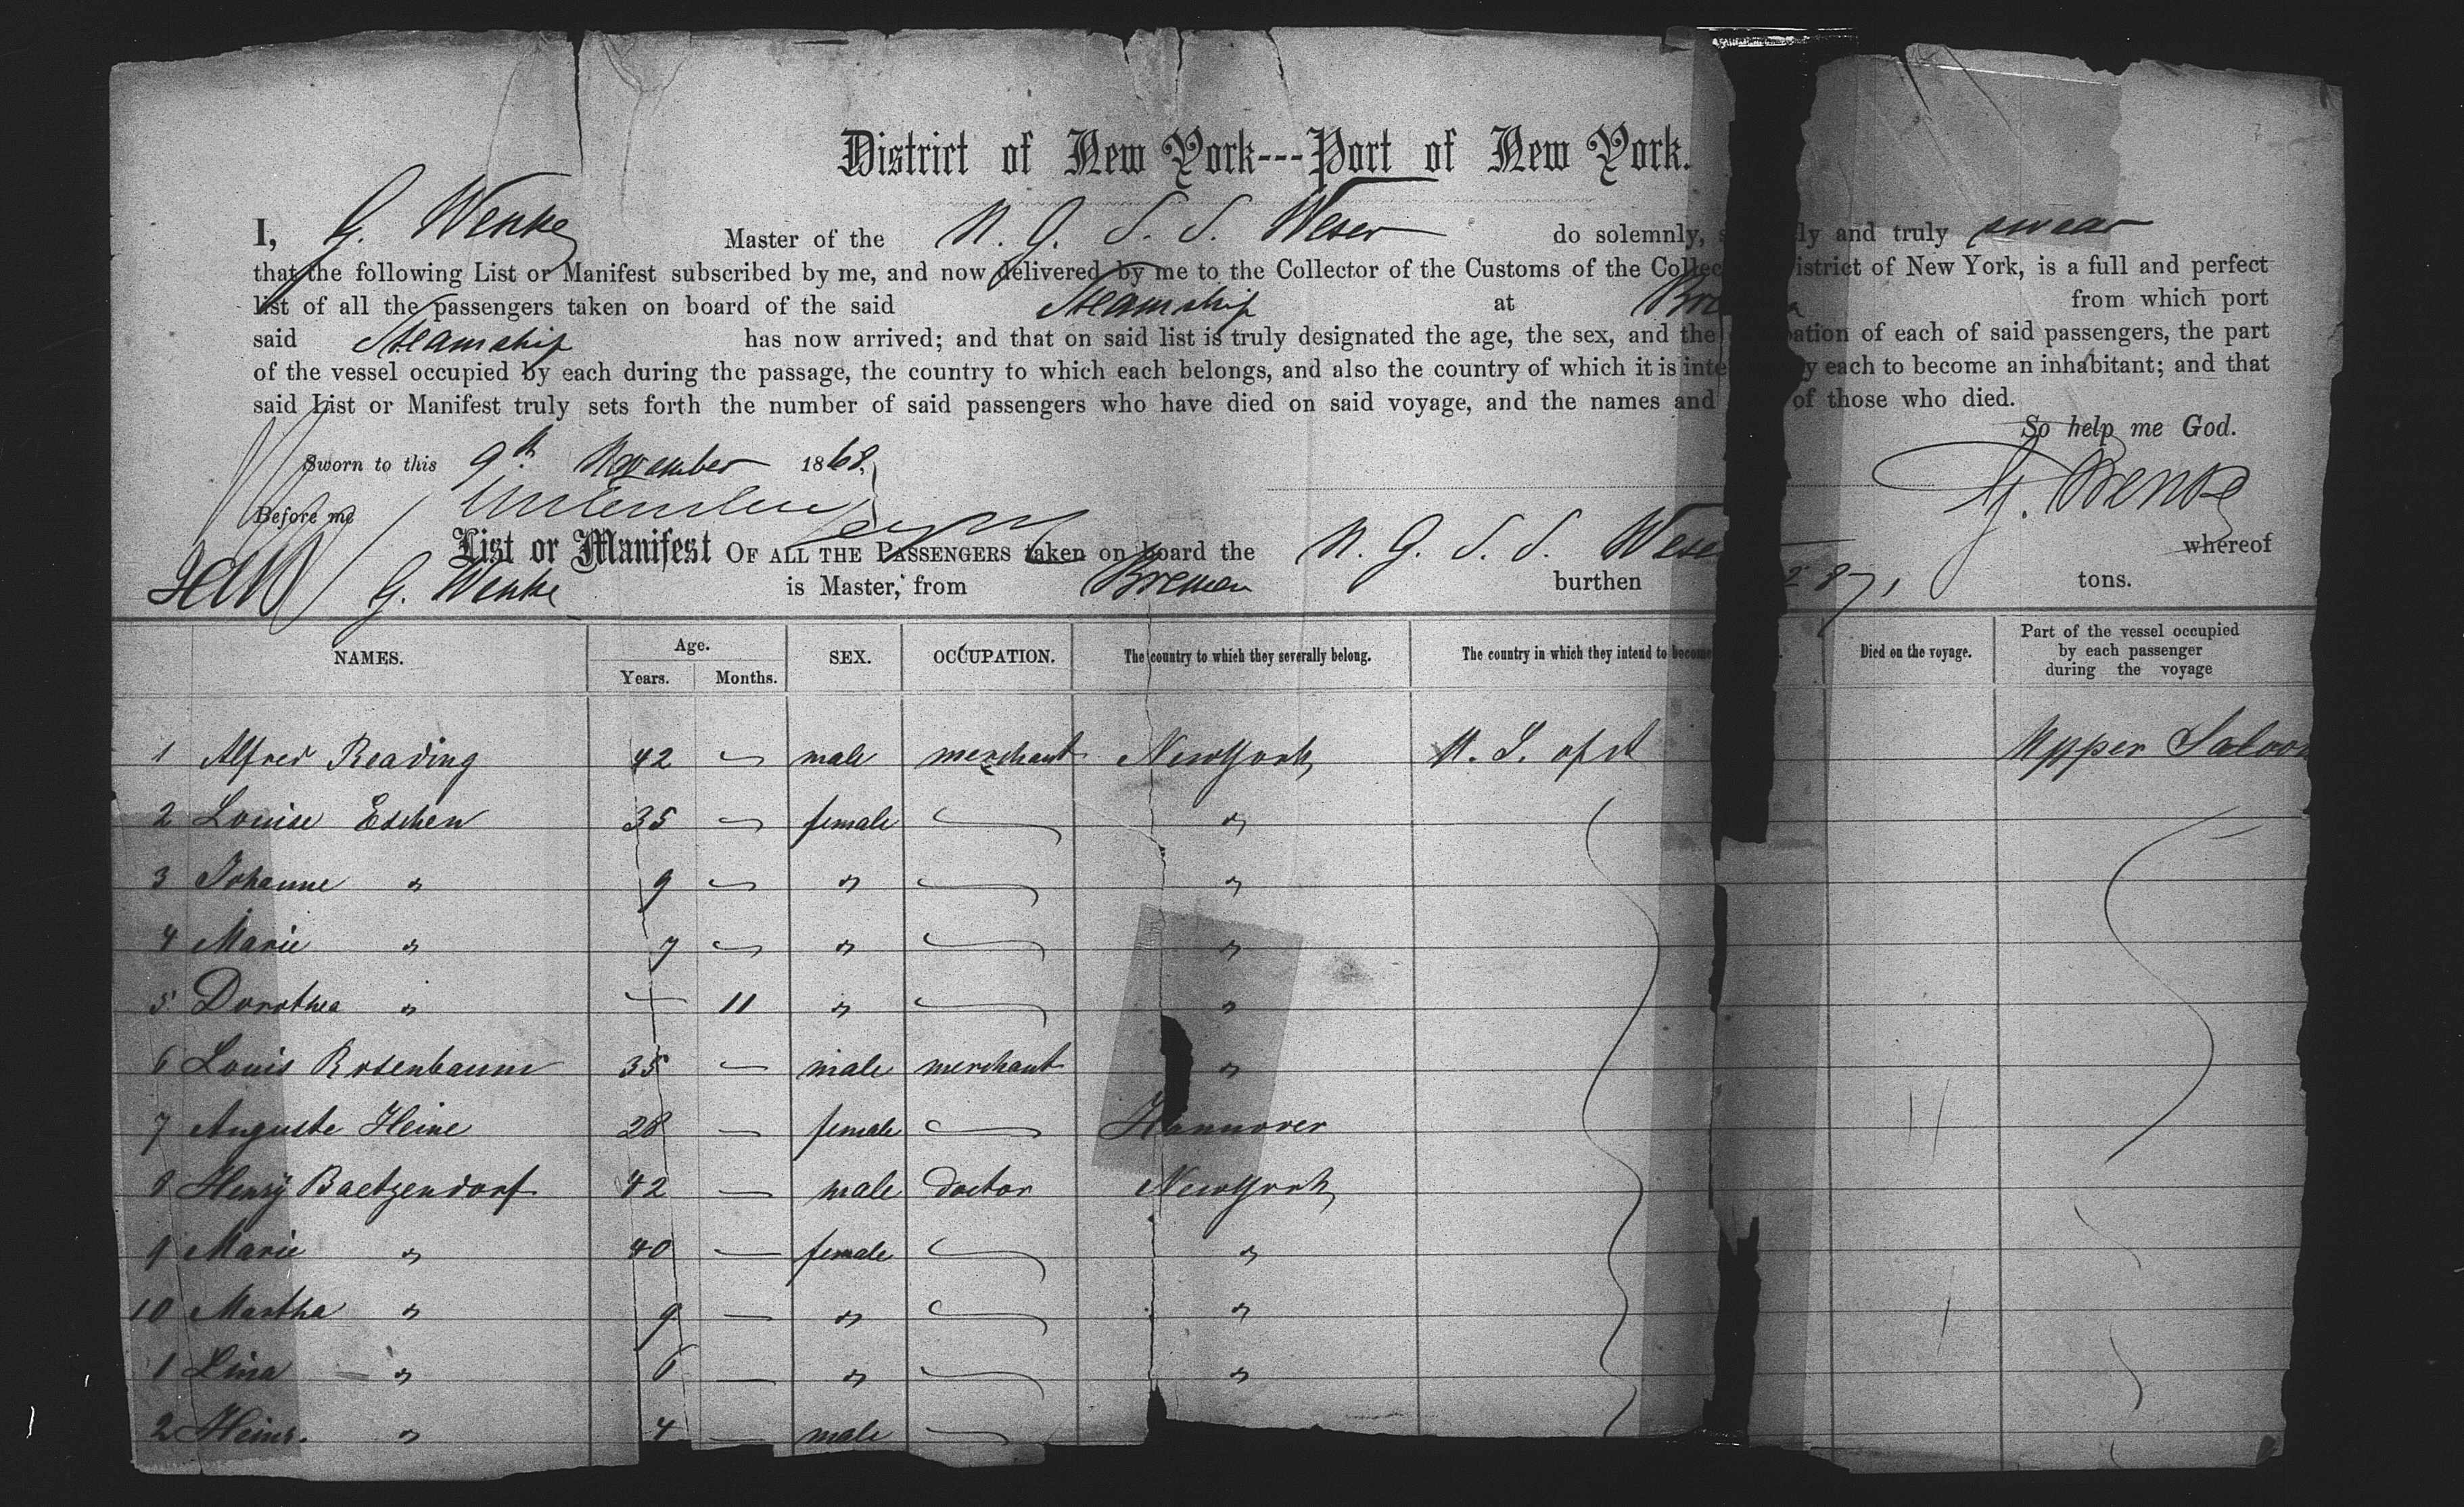 District of New York---Port of New York.
I, G. Wenke Master of the N. G. S. S. Weser do solemnly, s ly and truly swear
that the following List or Manifest subscribed by me, and now delivered by me to the Collector of the Customs of the Collec istrict of New York, is a full and perfect
list of all the passengers taken on board of the said Steamship at Bre from which port
said Steamship has now arrived; and that on said list is truly designated the age, the sex, and the pation of each of said passengers, the part
of the vessel occupied by each during the passage, the country to which each belongs, and also the country of which it is inte y each to become an inhabitant; and that
said List or Manifest truly sets forth the number of said passengers who have died on said voyage, and the names and of those who died.
So help me God.
Sworn to this 9th November 1868, G. Wenke
Before me
List or Manifest OF ALL THE PASSENGERS taken on board the N. G. S. S. Wese whereof
G. Wenke is Master, from Bremen burthen tons.
NAMES. Age. Years. Months. SEX. OCCUPATION. The country to which they severally belong. The country in which they intend to become Died on the voyage. Part of the vessel occupied by each passenger during the voyage
1 Alfred Reading 42 — male merchant New York U. S. of A Upper Saloon
2 Louise Eschen 35 — female — "
3 Johanne " 9 — " — "
4 Marie " 7 — " — "
5 Dorothea " — 11 " — "
6 Louis Rosenbaum 35 — male merchant "
7 Auguste Heine 28 — female — Hannover
8 Henry Baetzendorf 42 — male doctor New York
9 Marie " 40 — female — "
10 Martha " 9 — " — "
1 Lina " 6 — " — "
2 Heinr. " 4 — male —